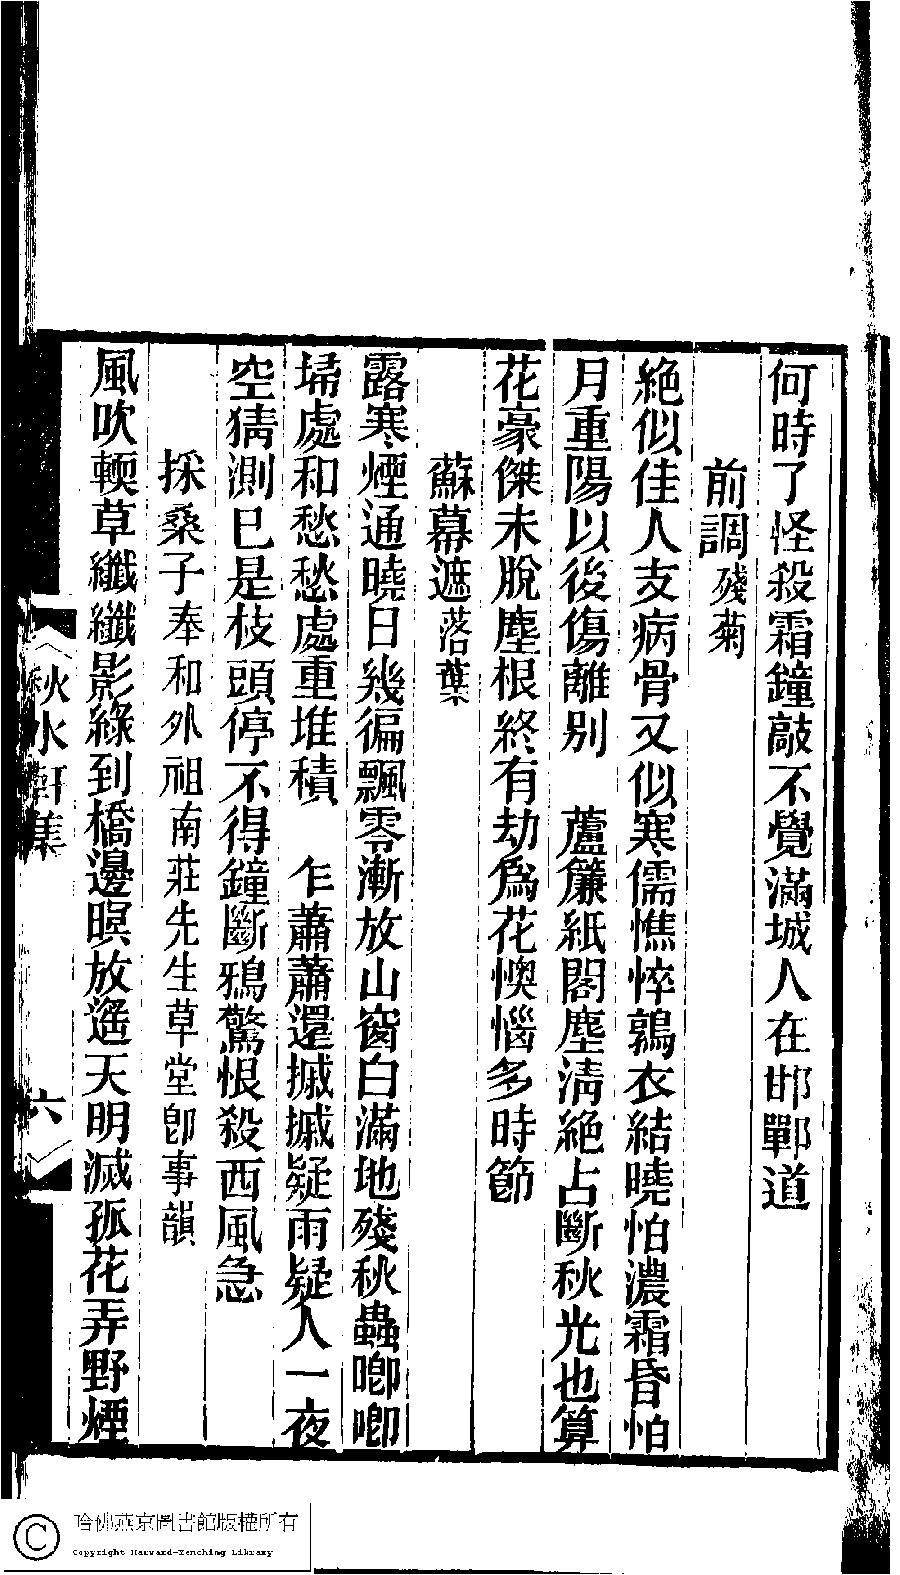 何時了怪殺霜鐘敲不覺滿城人在邯鄲道
前調殘菊
絕似佳人支病骨又似寒儒憔悴鶉衣結曉怕濃霜昏怕
月重陽以後傷離別　蘆簾紙閣塵淸絕占斷秋光也算
花豪傑未脫塵根終有劫爲花懊惱多時節
蘇幕遮落葉
露寒煙通曉日幾徧飄零漸放山窗白滿地殘秋蟲喞喞
埽處和愁愁處重堆積　乍蕭蕭還摵摵疑雨疑人一夜
空猜測已是枝頭停不得鐘斷鴉驚恨殺西風急
採桑子奉和外祖南莊先生草堂卽事韻
風吹輭草纖纖影綠到橋邊暝放遙天明滅孤花弄野煙
秋水軒集
六
哈佛燕京圖書館版權所有
Copyright Harvard-Yenching Library